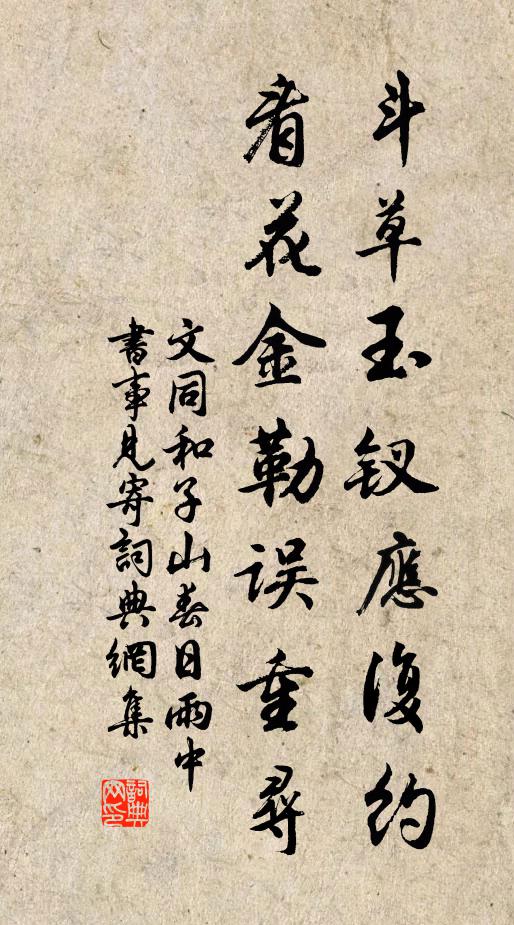 斗草玉釵應復約
看花金勒误重尋
文同和子山春日雨中
書事見寄詞典網集
詞典网印